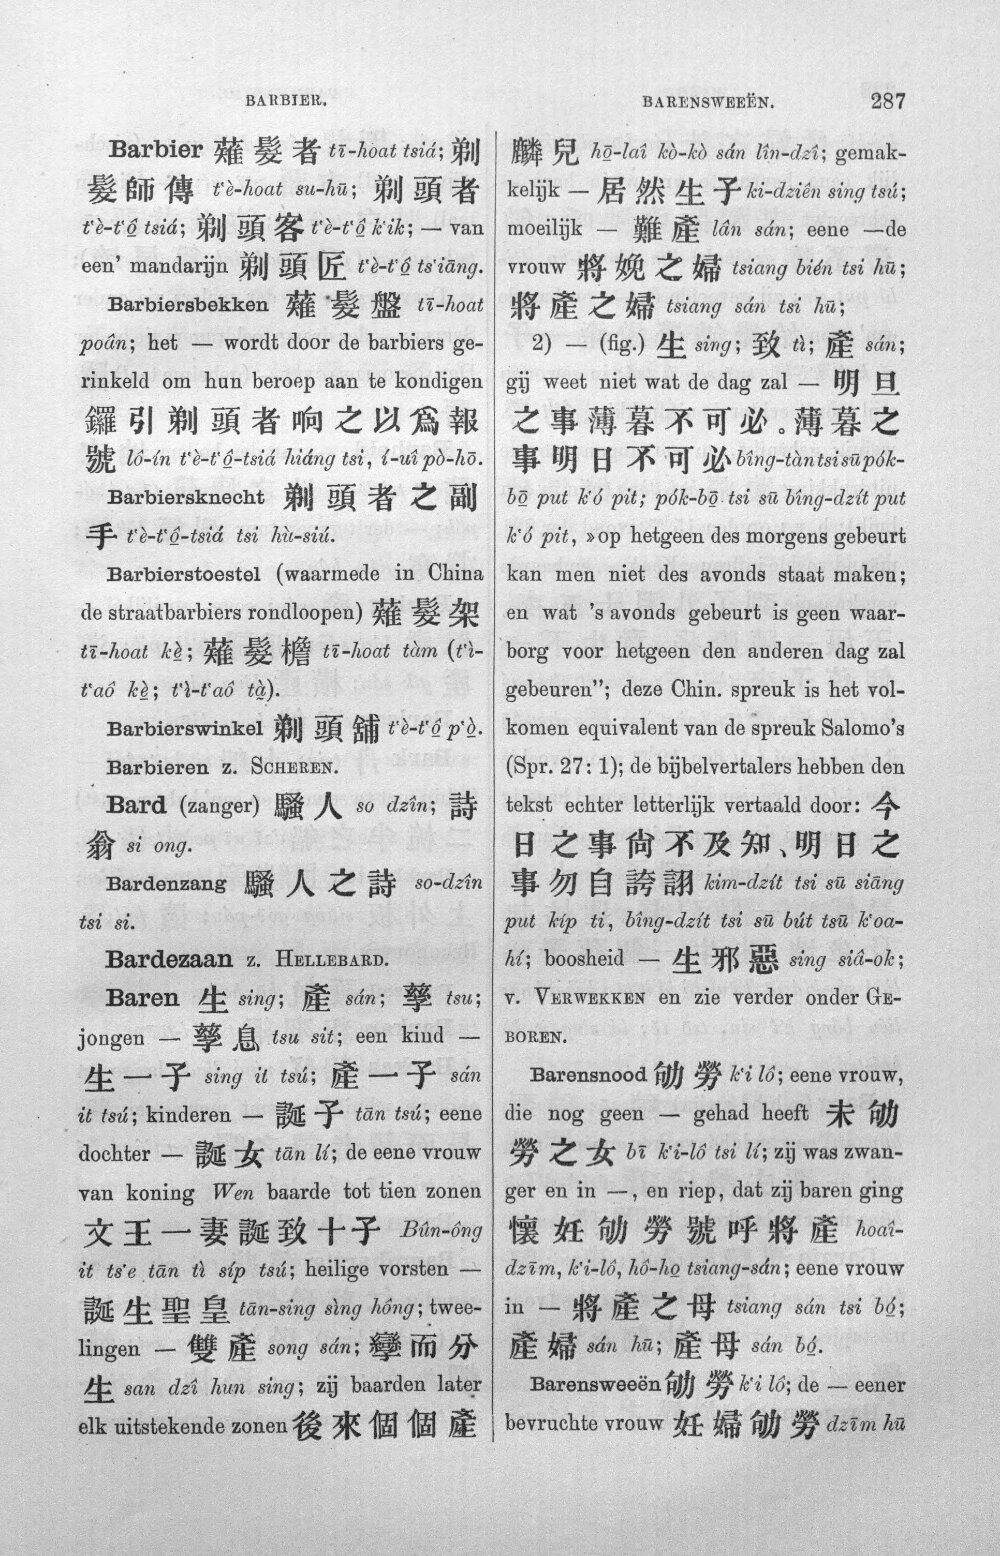 BARBIER.
BARENSWEEËN.
287
Barbier 薙髮者 tī-hoat tsiá; 剃
髮師傅 t‘è-hoat su-hū; 剃頭者
t‘è-t‘ô̱ tsiá; 剃頭客 t‘è-t‘ô̱ k‘ik; — van
een’ mandarijn 剃頭匠 t‘è-t‘ô̱ ts‘iāng.
Barbiersbekken 薙髮盤 tī-hoat
poân; het — wordt door de barbiers ge-
rinkeld om hun beroep aan te kondigen
鑼引剃頭者响之以爲報
號 lô-ín t‘è-t‘ô̱-tsiá hiáng tsi, í-uî pò-hō.
Barbiersknecht 剃頭者之副
手 t‘è-t‘ô̱-tsiá tsi hù-siú.
Barbierstoestel (waarmede in China
de straatbarbiers rondloopen) 薙髮架
tī-hoat kè̱; 薙髮檐 tī-hoat tàm (t‘ì-
t‘aô kè̱; t‘ì-t‘aô tà̱).
Barbierswinkel 剃頭舖 t‘è-t‘ô̱ p‘ò̱.
Barbieren z. SCHEREN.
Bard (zanger) 騷人 so dzîn; 詩
翁 si ong.
Bardenzang 騷人之詩 so-dzîn
tsi si.
Bardezaan z. HELLEBARD.
Baren 生 sing; 產 sán; 孳 tsu;
jongen — 孳息 tsu sit; een kind —
生一子 sing it tsú; 產一子 sán
it tsú; kinderen — 誕子 tān tsú; eene
dochter — 誕女 tān lí; de eene vrouw
van koning Wen baarde tot tien zonen
文王一妻誕致十子 Bûn-ông
it ts‘e tān tì síp tsú; heilige vorsten —
誕生聖皇 tān-sing sìng hông; twee-
lingen — 雙產 song sán; 孿而分
生 san dzî hun sing; zij baarden later
elk uitstekende zonen 後來個個產
麟兒 hō̱-laî kò-kò sán lîn-dzî; gemak-
kelijk — 居然生子 ki-dziên sing tsú;
moeilijk — 難產 lân sán; eene —de
vrouw 將娩之婦 tsiang bién tsi hū;
將產之婦 tsiang sán tsi hū;
2) — (fig.) 生 sing; 致 tì; 產 sán;
gij weet niet wat de dag zal — 明旦
之事薄暮不可必。薄暮之
事明日不可必 bîng-tàn tsi sū pók-
bō̱ put k‘ó pit; pók-bō̱ tsi sū bîng-dzít put
k‘ó pit, »op hetgeen des morgens gebeurt
kan men niet des avonds staat maken;
en wat ’s avonds gebeurt is geen waar-
borg voor hetgeen den anderen dag zal
gebeuren”; deze Chin. spreuk is het vol-
komen equivalent van de spreuk Salomo’s
(Spr. 27: 1); de bijbelvertalers hebben den
tekst echter letterlijk vertaald door: 今
日之事尙不及知、明日之
事勿自誇詡 kim-dzít tsi sū siāng
put kíp ti, bîng-dzít tsi sū bút tsū k‘oa-
hí; boosheid — 生邪惡 sing siâ-ok;
v. VERWEKKEN en zie verder onder GE-
BOREN.
Barensnood 劬勞 k‘i lô; eene vrouw,
die nog geen — gehad heeft 未劬
勞之女 bī k‘i-lô tsi lí; zij was zwan-
ger en in —, en riep, dat zij baren ging
懷妊劬勞號呼將產 hoaî-
dzīm, k‘i-lô, hô-ho̱ tsiang-sán; eene vrouw
in — 將產之母 tsiang sán tsi bó̱;
產婦 sán hū; 產母 sán bó̱.
Barensweeën 劬勞 k‘i lô; de — eener
bevruchte vrouw 妊婦劬勞 dzīm hū